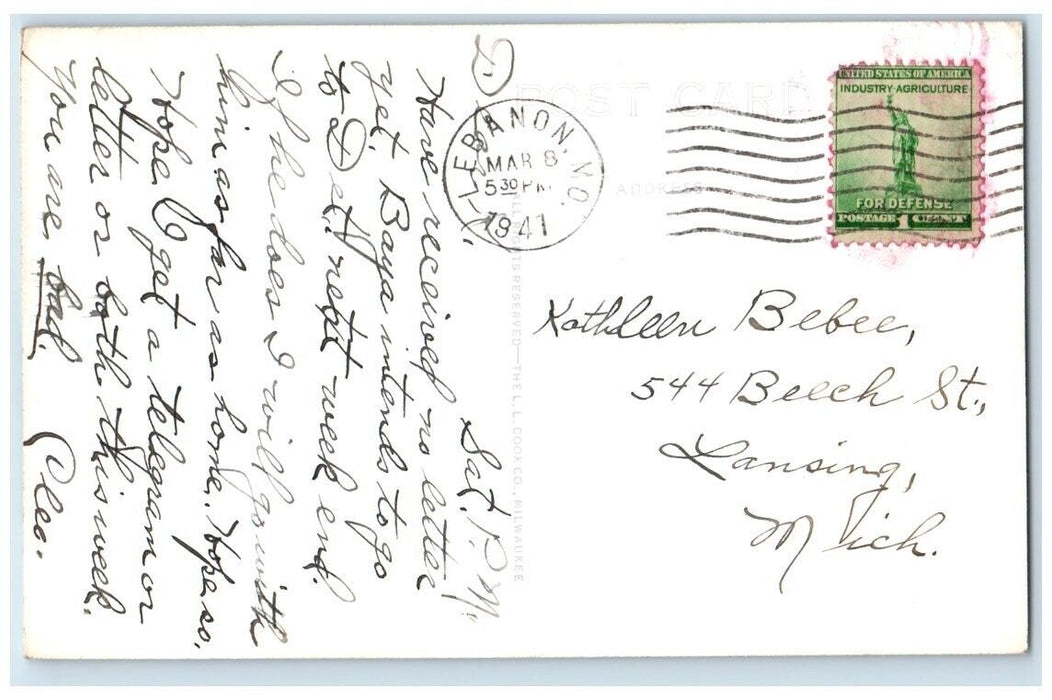 POST CARD
ADDRESS
LEBANON, MO.
MAR 8
5 30 PM
1941
UNITED STATES OF AMERICA
INDUSTRY-AGRICULTURE
FOR DEFENSE
POSTAGE 1 CENT
Sat. P.M.
D.
Have received no letter
yet. Baya intends to go
to Det. next week end.
If he does I will go with
him as far as home. Hope so.
Hope I get a telegram or
letter or both this week.
You are bad.
Cleo.
Kathleen Bebee,
544 Beech St.,
Lansing,
Mich.
RESERVED—THE L.L. COOK CO., MILWAUKEE